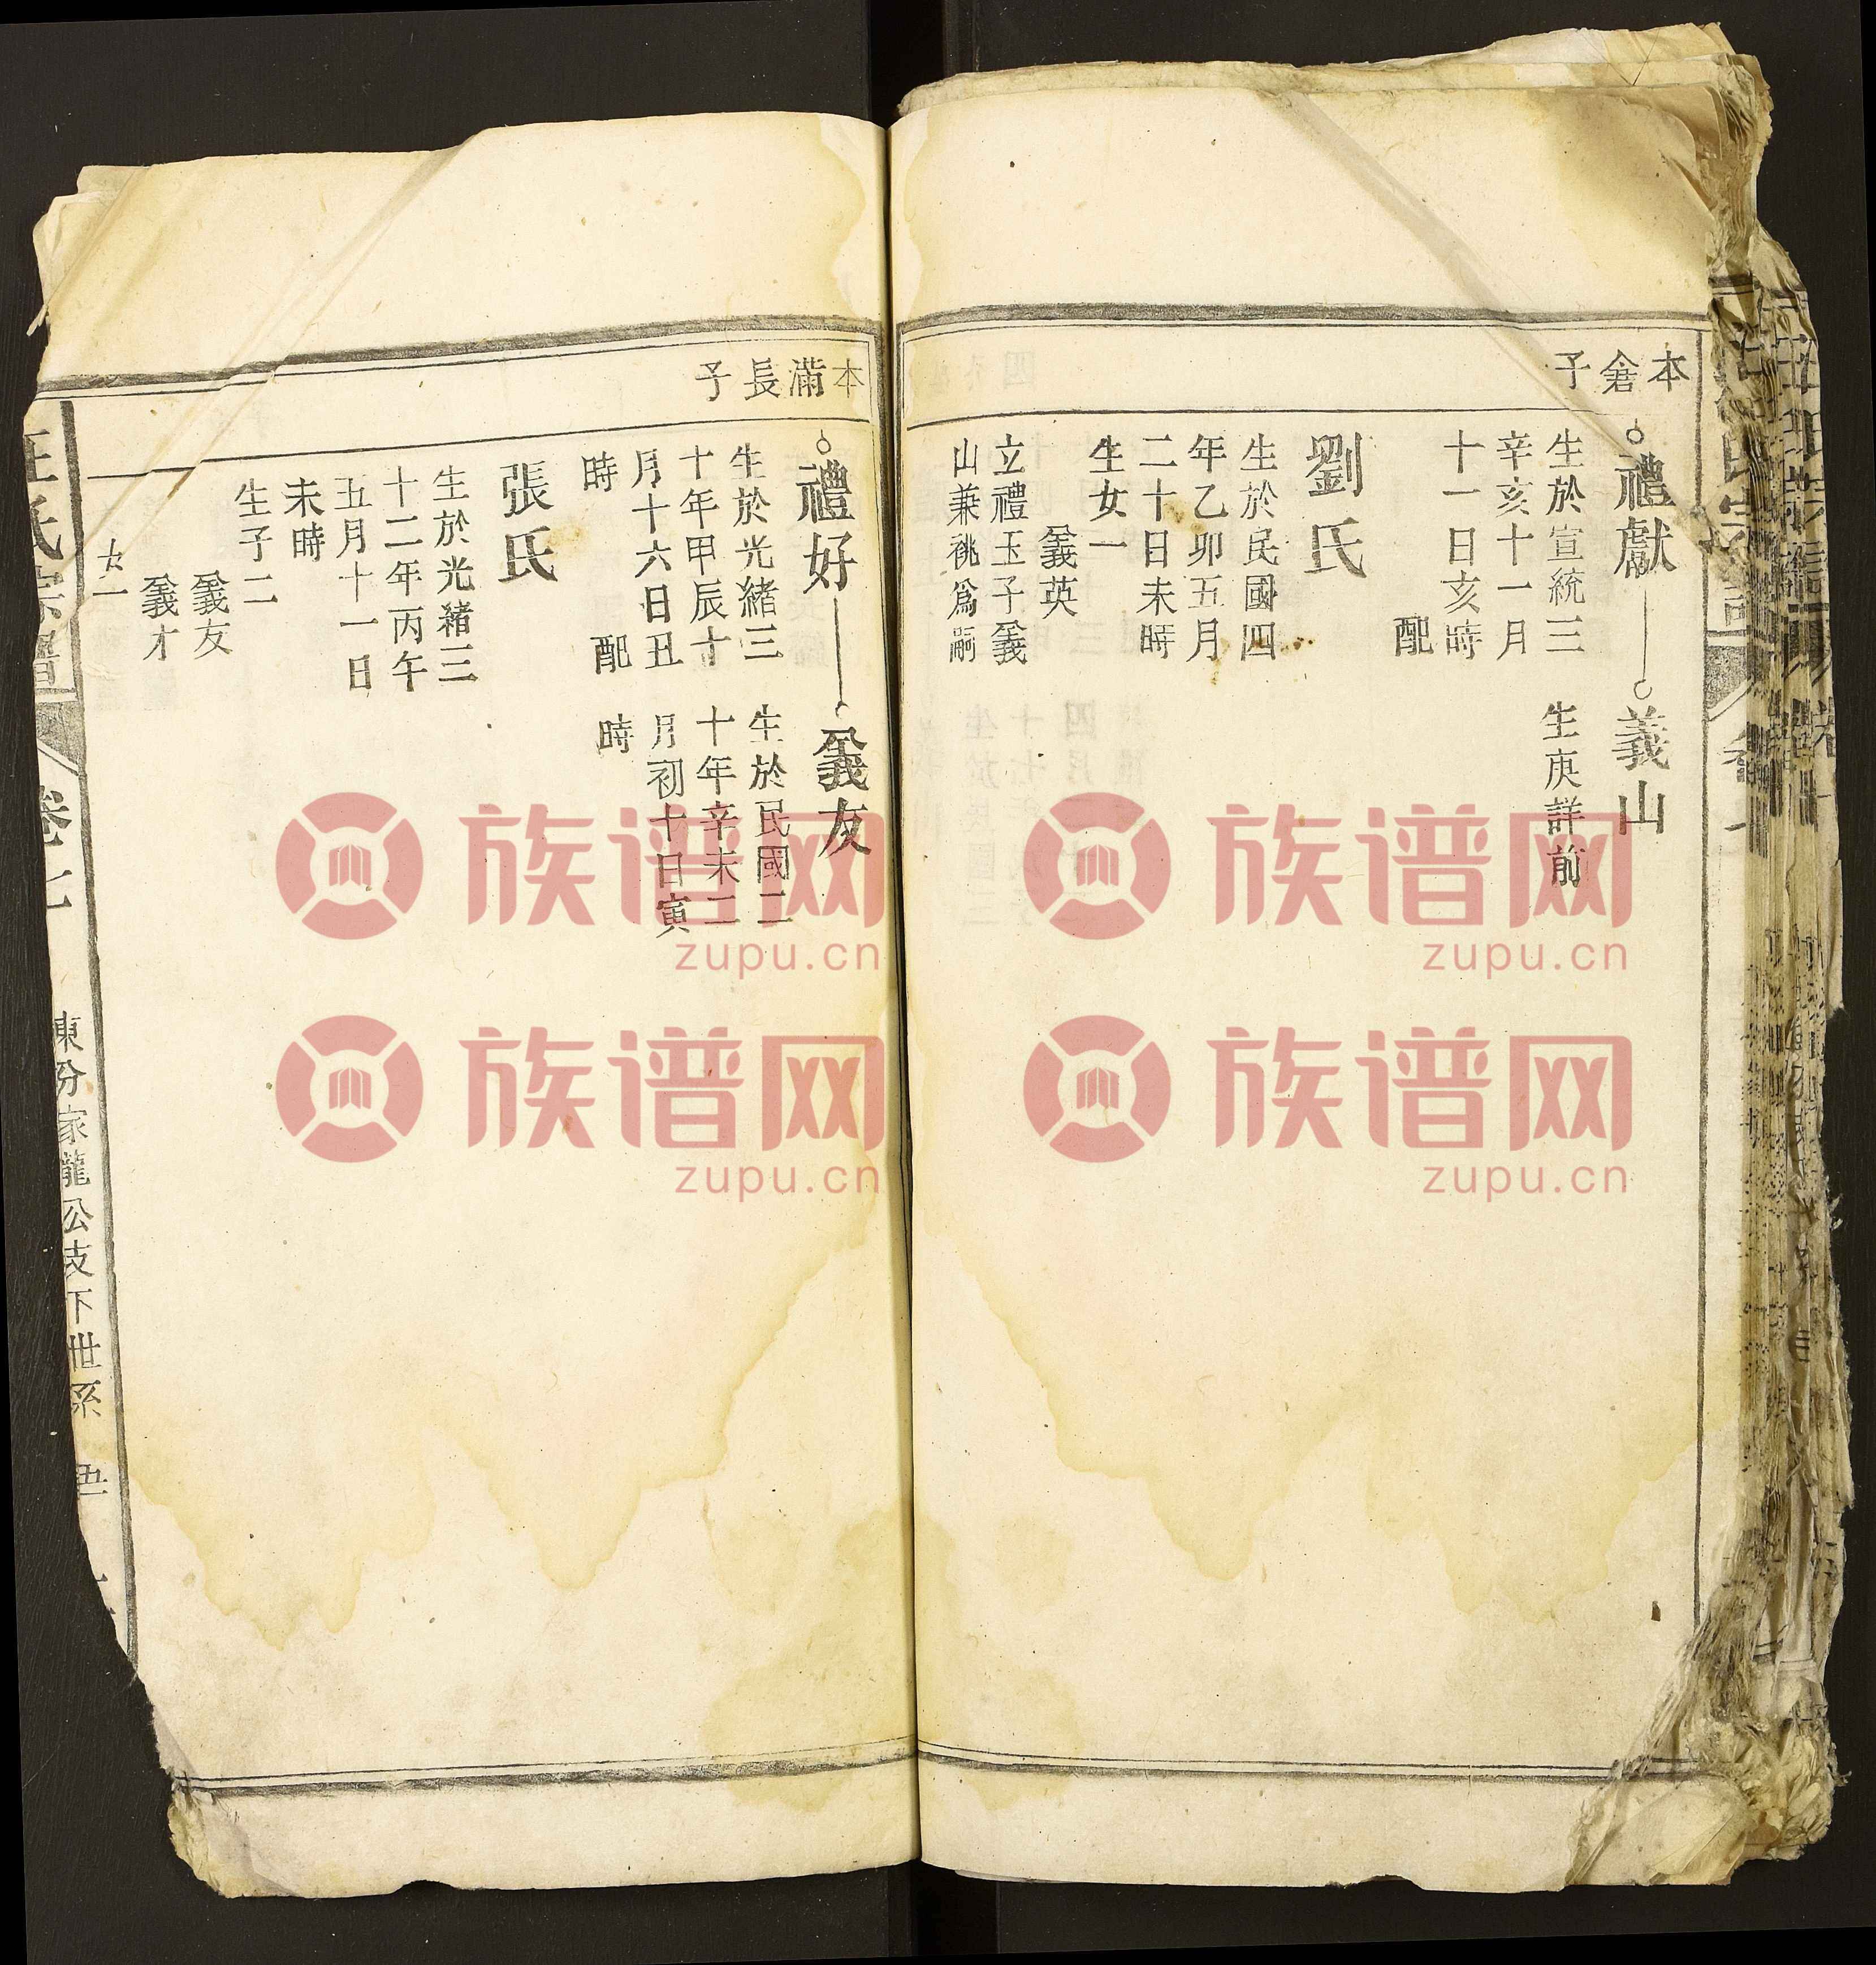 本倉子
禮獻
義山
生於宣統三
辛亥十一月
十一日亥時
配
生庚詳前
劉氏
生於民國四
年乙卯五月
二十日未時
生女一
義英
立禮玉子義
山兼祧爲嗣
本滿長子
禮好
義友
生於光緒三
十年甲辰十
月十六日丑
時
配
生於民國二
十年辛未二
月初十日寅
時
張氏
生於光緒三
十二年丙午
五月十一日
未時
生子二
義友
義才
女一
汪氏宗譜
卷七
東分家龍公支下世系
族谱网
zupu.cn
族谱网
zupu.cn
族谱网
zupu.cn
族谱网
zupu.cn